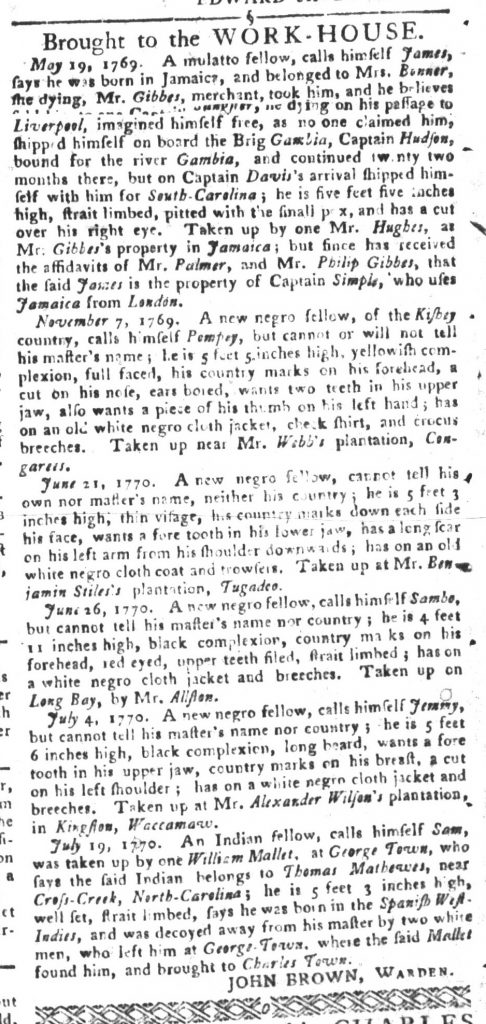 Brought to the WORK-HOUSE.
May 19, 1769. A mulatto fellow, calls himself James,
says he was born in Jamaica, and belonged to Mrs. Bonner,
she dying, Mr. Gibbes, merchant, took him, and he believes
he dying on his passage to
Liverpool, imagined himself free, as no one claimed him,
shipped himself on board the Brig Gambia, Captain Hudson,
bound for the river Gambia, and continued twenty two
months there, but on Captain Davis's arrival shipped him-
self with him for South-Carolina; he is five feet five inches
high, strait limbed, pitted with the small pox, and has a cut
over his right eye. Taken up by one Mr. Hughes, as
Mr. Gibbes's property in Jamaica; but since has received
the affidavits of Mr. Palmer, and Mr. Philip Gibbes, that
the said James is the property of Captain Simple, who uses
Jamaica from London.
November 7, 1769. A new negro fellow, of the Kishey
country, calls himself Pompey, but cannot or will not tell
his master's name; he is 5 feet 5 inches high, yellowish com-
plexion, full faced, his country marks on his forehead, a
cut on his nose, ears bored, wants two teeth in his upper
jaw, also wants a piece of his thumb on his left hand; has
on an old white negro cloth jacket, check shirt, and crocus
breeches. Taken up near Mr. Webb's plantation, Con-
garees.
June 21, 1770. A new negro fellow, cannot tell his
own nor master's name, neither his country; he is 5 feet 3
inches high, thin visage, his country marks down each side
his face, wants a fore tooth in his lower jaw, has a long scar
on his left arm from his shoulder downwards; has on an old
white negro cloth coat and trowsers. Taken up at Mr. Ben-
jamin Stiles's plantation, Tugadoo.
June 26, 1770. A new negro fellow, calls himself Sambo,
but cannot tell his master's name nor country; he is 4 feet
11 inches high, black complexion, country marks on his
forehead, red eyed, upper teeth filed, strait limbed; has on
a white negro cloth jacket and breeches. Taken up on
Long Bay, by Mr. Allston.
July 4, 1770. A new negro fellow, calls himself Jemmy,
but cannot tell his master's name nor country; he is 5 feet
6 inches high, black complexion, long beard, wants a fore
tooth in his upper jaw, country marks on his breast, a cut
on his left shoulder; has on a white negro cloth jacket and
breeches. Taken up at Mr. Alexander Wilson's plantation,
in Kingston, Waccamaw.
July 19, 1770. An Indian fellow, calls himself Sam,
was taken up by one William Mallet, at George Town, who
says the said Indian belongs to Thomas Mathewes, near
Cross-Creek, North-Carolina; he is 5 feet 3 inches high,
well set, strait limbed, says he was born in the Spanish West-
Indies, and was decoyed away from his master by two white
men, who left him at George-Town, where the said Mallet
found him, and brought to Charles Town.
JOHN BROWN, WARDEN.
CHARLES